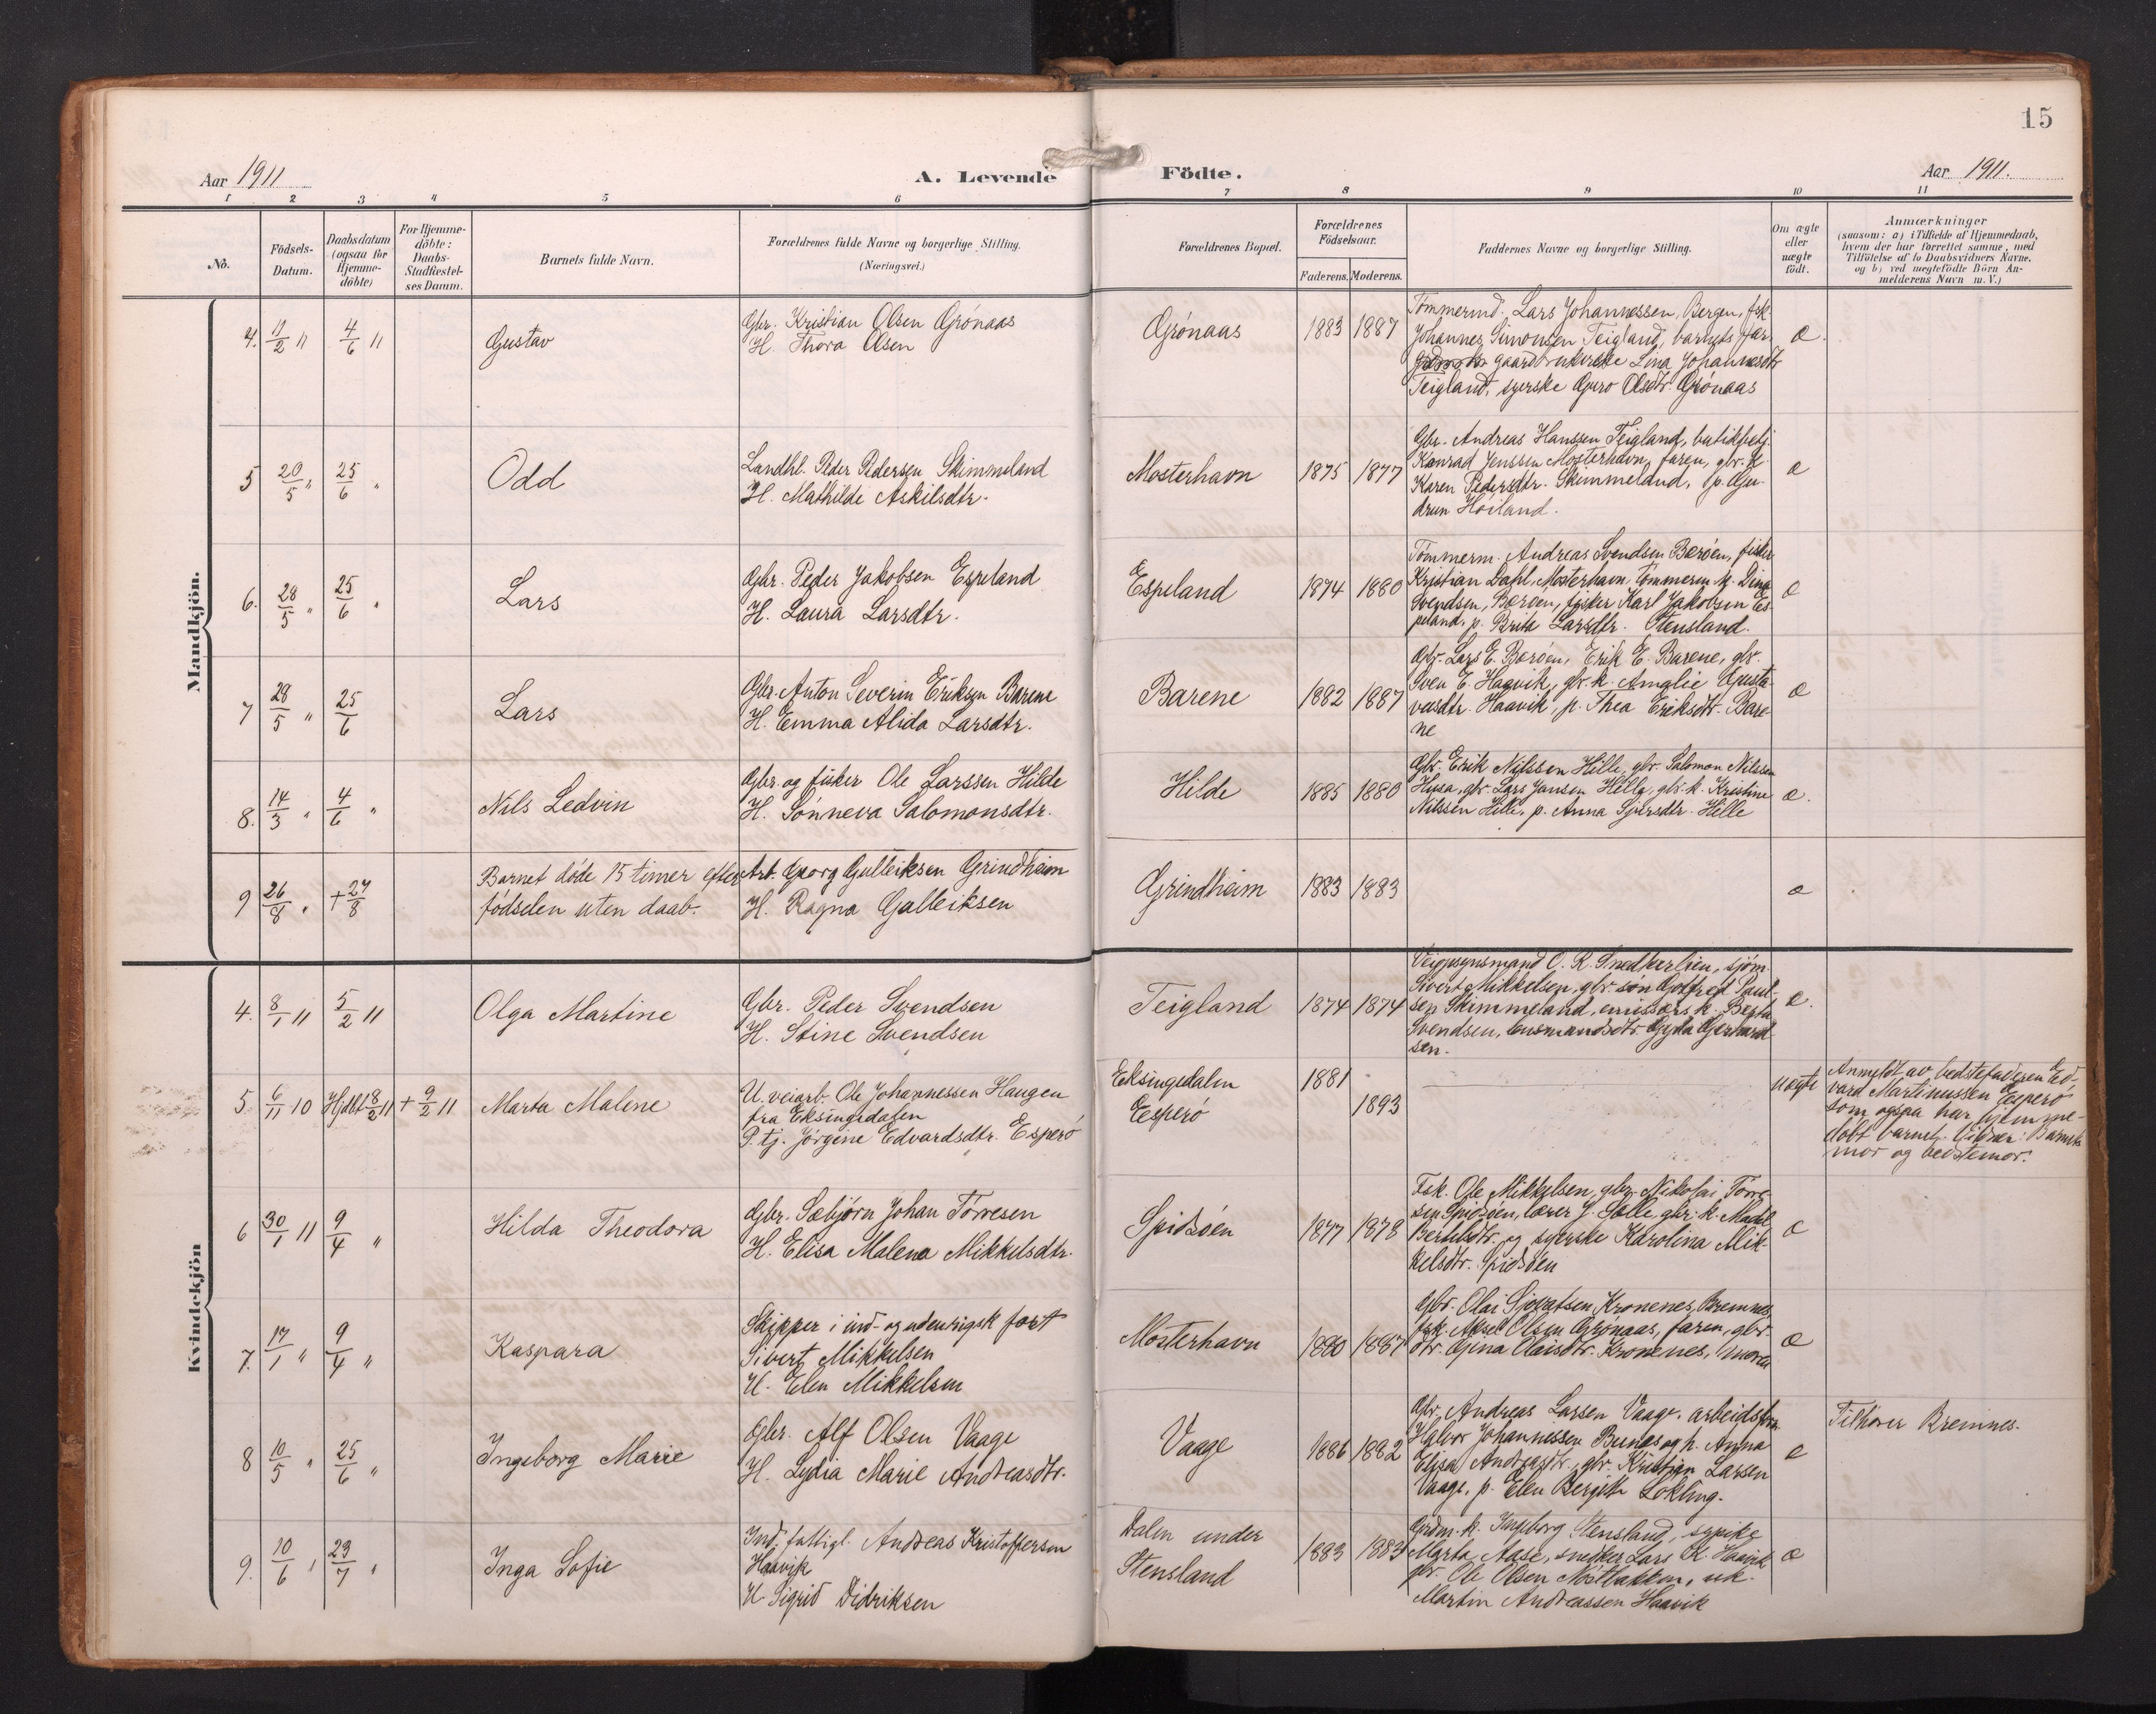 15
Aar 1911
A. Levende Födte.
Aar 1911.
1 2 3 4 5 6 7 8 9 10 11
No.
Födsels-Datum.
Daabsdatum (ogsaa for Hjemme-döbte)
For Hjemme-döbte: Daabs-Stadfæstel-ses Datum.
Barnets fulde Navn.
Forældrenes fulde Navne og borgerlige Stilling.
(Næringsvei.)
Forældrenes Bopæl.
Forældrenes Födselsaar.
Faderens. Moderens.
Faddernes Navne og borgerlige Stilling.
Om ægte eller uægte födt.
Anmærkninger
(saasom: a) i Tilfælde af Hjemmedaab,
hvem der har forrettet samme, med
Tilföielse af to Daabsvidners Navne.
og b) ved uægtefödte Börn An-
melderens Navn m. V.)
Mandkjön.
4. 11/2 11 4/6 11 Gustav
Gbr. Kristian Olsen Grönaas
H. Thora Olsen
Grönaas 1883 1887
Tömmermd. Lars Johannessen, Bergen, fsk.
Johannes Simonsen Teigland, barnets far.
gaardbrukerske Lina Johannesdtr
Teigland, syerske Guro Olsdtr. Grönaas
æ.
5 20/5 " 25/6 " Odd
Landhl. Peder Pedersen Skimmeland
H. Mathilde Askilsdtr.
Mosterhavn 1875 1877
Gbr. Andreas Hanssen Teigland, butikbetj.
Konrad Jenssen Mosterhavn, faren, gbr. k.
Karen Pedersdtr. Skimmeland, p. Gu-
drun Höiland.
æ
6. 28/5 " 25/6 " Lars
Gbr. Peder Jakobsen Espeland
H. Laura Larsdtr.
Espeland 1874 1880
Tömmerm. Andreas Svendsen Beröen, fisker
Kristian Dahl, Mosterhavn, tömmerm. k. Dina
Svendsen, Beröen, fisker Karl Jakobsen Es-
peland, p. Brita Larsdtr. Stensland.
æ
7 28/5 " 25/6 Lars
Gbr. Anton Severin Eriksen Barene
H. Emma Alida Larsdtr.
Barene 1882 1887
Gbr. Lars E. Beröen, Erik E. Barene, gbr.
Sven E. Haavik, gbr. k. Amalie Gusta-
vusdtr. Haavik, p. Thea Eriksdt. Bare-
ne
æ
8. 14/3 " 4/6 " Nils Ledvin
Gbr. og fisker Ole Larssen Hilde
H. Sönneva Salomonsdtr.
Hilde 1885 1880
Gbr. Erik Nilssen Hille, gbr. Salomon Nilssen
Husa, gbr. Lars Jansen Hille, gbr. k. Kristine
Nilssen Hille, p. Anna Sjursdtr. Hille
æ.
9 26/8 " +27/8
Barnet döde 15 timer efter
födselen uten daab.
Arb. Georg Gulleiksen Grindheim
H. Ragna Gulleiksen
Grindheim 1883 1883
æ
Kvindekjön
4. 8/1 11 5/2 11 Olga Martine
Gbr. Peder Svendsen
H. Stine Svendsen
Teigland 1874 1874
Veiopsynsmand O. R. Snedkerlien, sjöm.
Sivert Mikkelsen, gbr. sön Gotfred Paul-
sen Skimmeland, emissærs k. Berta
Svendsen, lensmandsdtr Gyda Gerhard-
sen.
æ.
5. 6/11 10 Hjdbt 18/2 11 +9/2 11 Marta Malene
U. veiarb. Ole Johannessen Haugen
fra Eksingedalen
P. tj. Jörgine Edvardsdtr. Esperö
Eksingedalen 1881
Esperö 1893
uægte
Anmeldt av bedstefaderen Ed-
vard Martinussen Esperö
som ogsaa har hjemme-
döbt barnet. Vidner: Barnets
mor og bedstemor.
6 30/1 11 9/4 " Hilda Theodora
Gbr. Sæbjörn Johan Törresen
H. Elisa Malena Mikkelsdtr.
Spidsöen 1877 1878
Fsk. Ole Mikkelsen, gbr. Nikolai Törre-
sen Spidsöen, lærer J. Salle, gbr. k.
Bertelsdtr. og syerske Karolina Mik-
kelsdtr. Spidsöen
æ
7. 17/1 " 9/4 " Kaspara
Skipper i ind- og udenrigsk fart
Sivert Mikkelsen
H. Elen Mikkelsen
Mosterhavn 1880 1887
Gbr. Olai Sjovatsen Kronenes, Bremnes,
fsk. Aksel Olsen Grönaas, faren, gbr.
dtr. Gjina Olaisdtr. Kronenes, moren
æ
8 10/5 " 25/6 " Ingeborg Marie
Gbr. Alf Olsen Vaage
H. Lydia Marie Andreasdtr.
Vaage 1886 1882
Gbr. Andreas Larsen Vaage, arbeidsfor.
Halvor Johannessen Bunes og h. Anna
Elisa Andreasdtr., gbr. Kristian Larsen
Vaage, p. Elen Bergitte Lökling.
æ
Tilhörer Bremnes.
9. 10/6 " 23/7 " Inga Sofie
Ind. fattigl. Andreas Kristoffersen
Haavik
H. Sigrid Didriksen
Dalen under
Stensland
1883 1883
Grdm. k. Ingeborg Stensland, sypike
Marta Aase, snedker Lars K. Haavik
gbr. Ole Olsen Nöstbakken, uk.
Martin Andreassen Haavik
æ